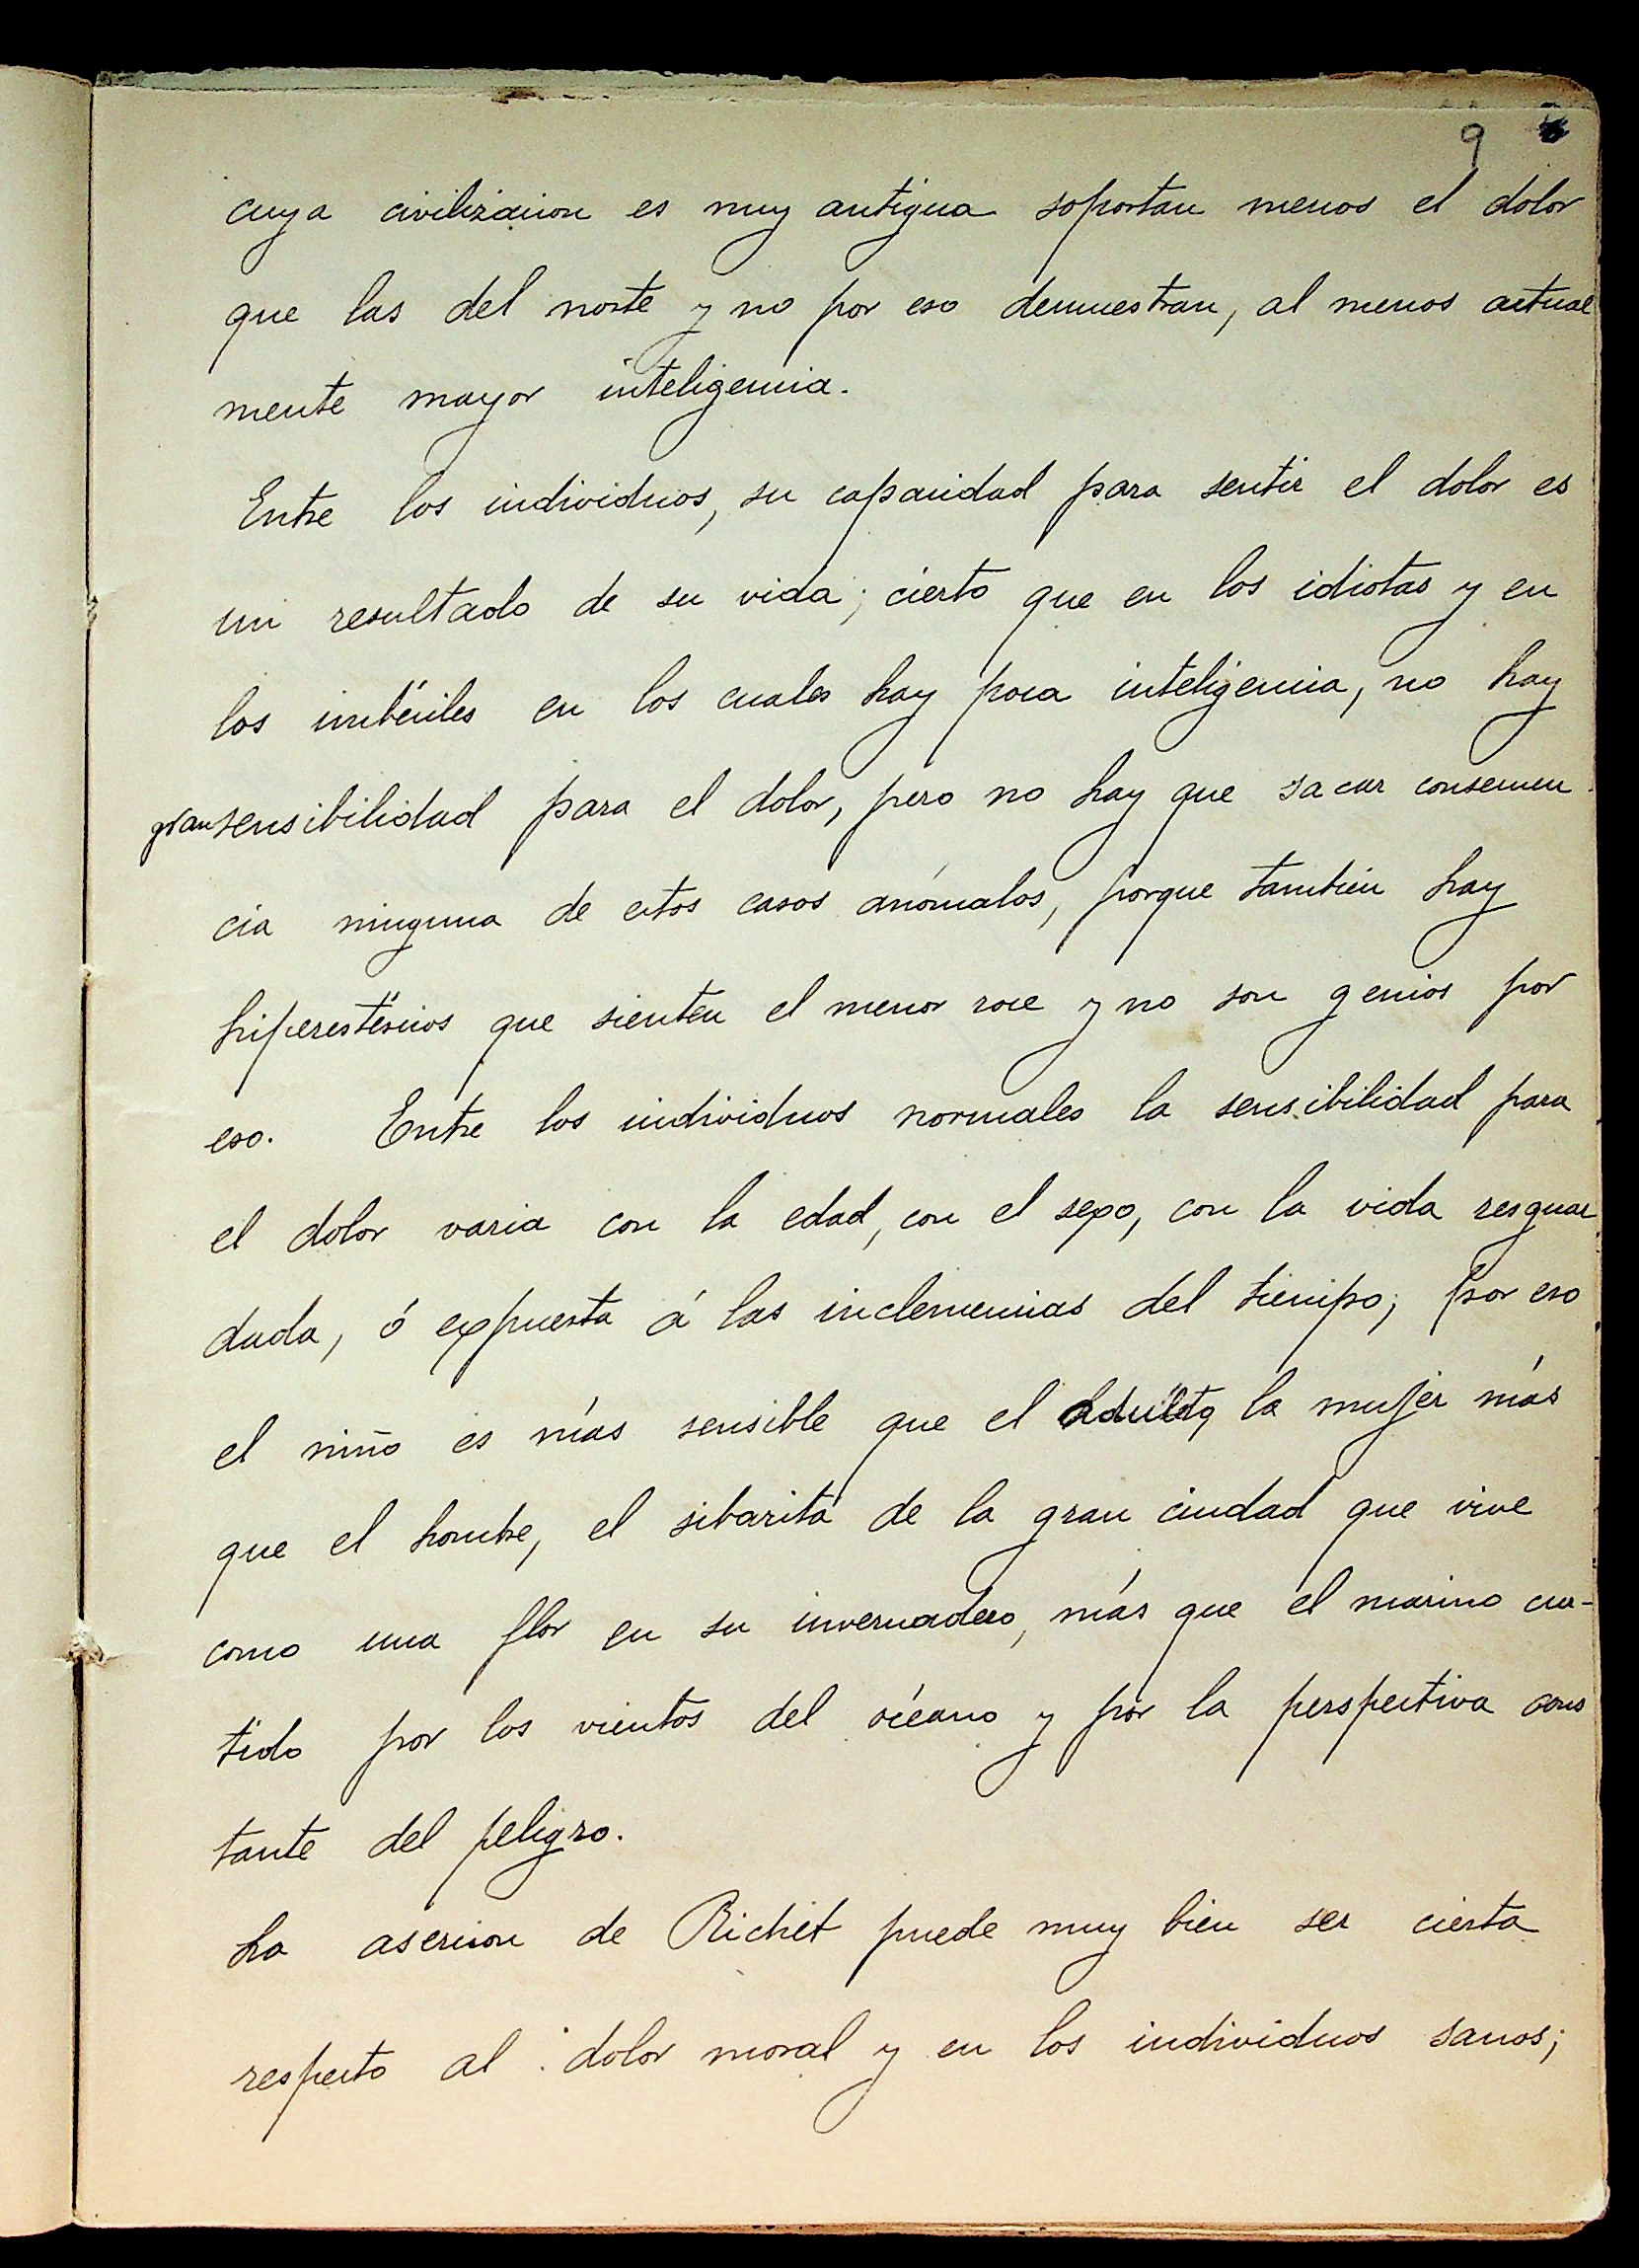 9
cuya civilizacion es muy antigua soportan menos el dolor
que las del norte y no por eso demuestran, al menos actual
mente mayor inteligencia.
Entre los individuos, su capacidad para sentir el dolor es
un resultado de su vida; cierto que en los idiotas y en
los imbéciles en los cuales hay poca inteligencia, no hay
gran sensibilidad para el dolor, pero no hay que sacar consecuen
cia ninguna de estos casos anómalos, porque tambien hay
hiperestésicos que sienten el menor roce y no son genios por
eso. Entre los individuos normales la sensibilidad para
el dolor varia con la edad, con el sexo, con la vida resguar
dada, ó expuesta á las inclemencias del tiempo; por eso
el niño es más sensible que el adulto, la mujer más
que el hombre, el sibarita de la gran ciudad que vive
como una flor en su invernadero, más que el marino cur-
tido por los vientos del océano y por la perspectiva cons
tante del peligro.
La asercion de Richet puede muy bien ser cierta
respecto al dolor moral y en los individuos sanos;